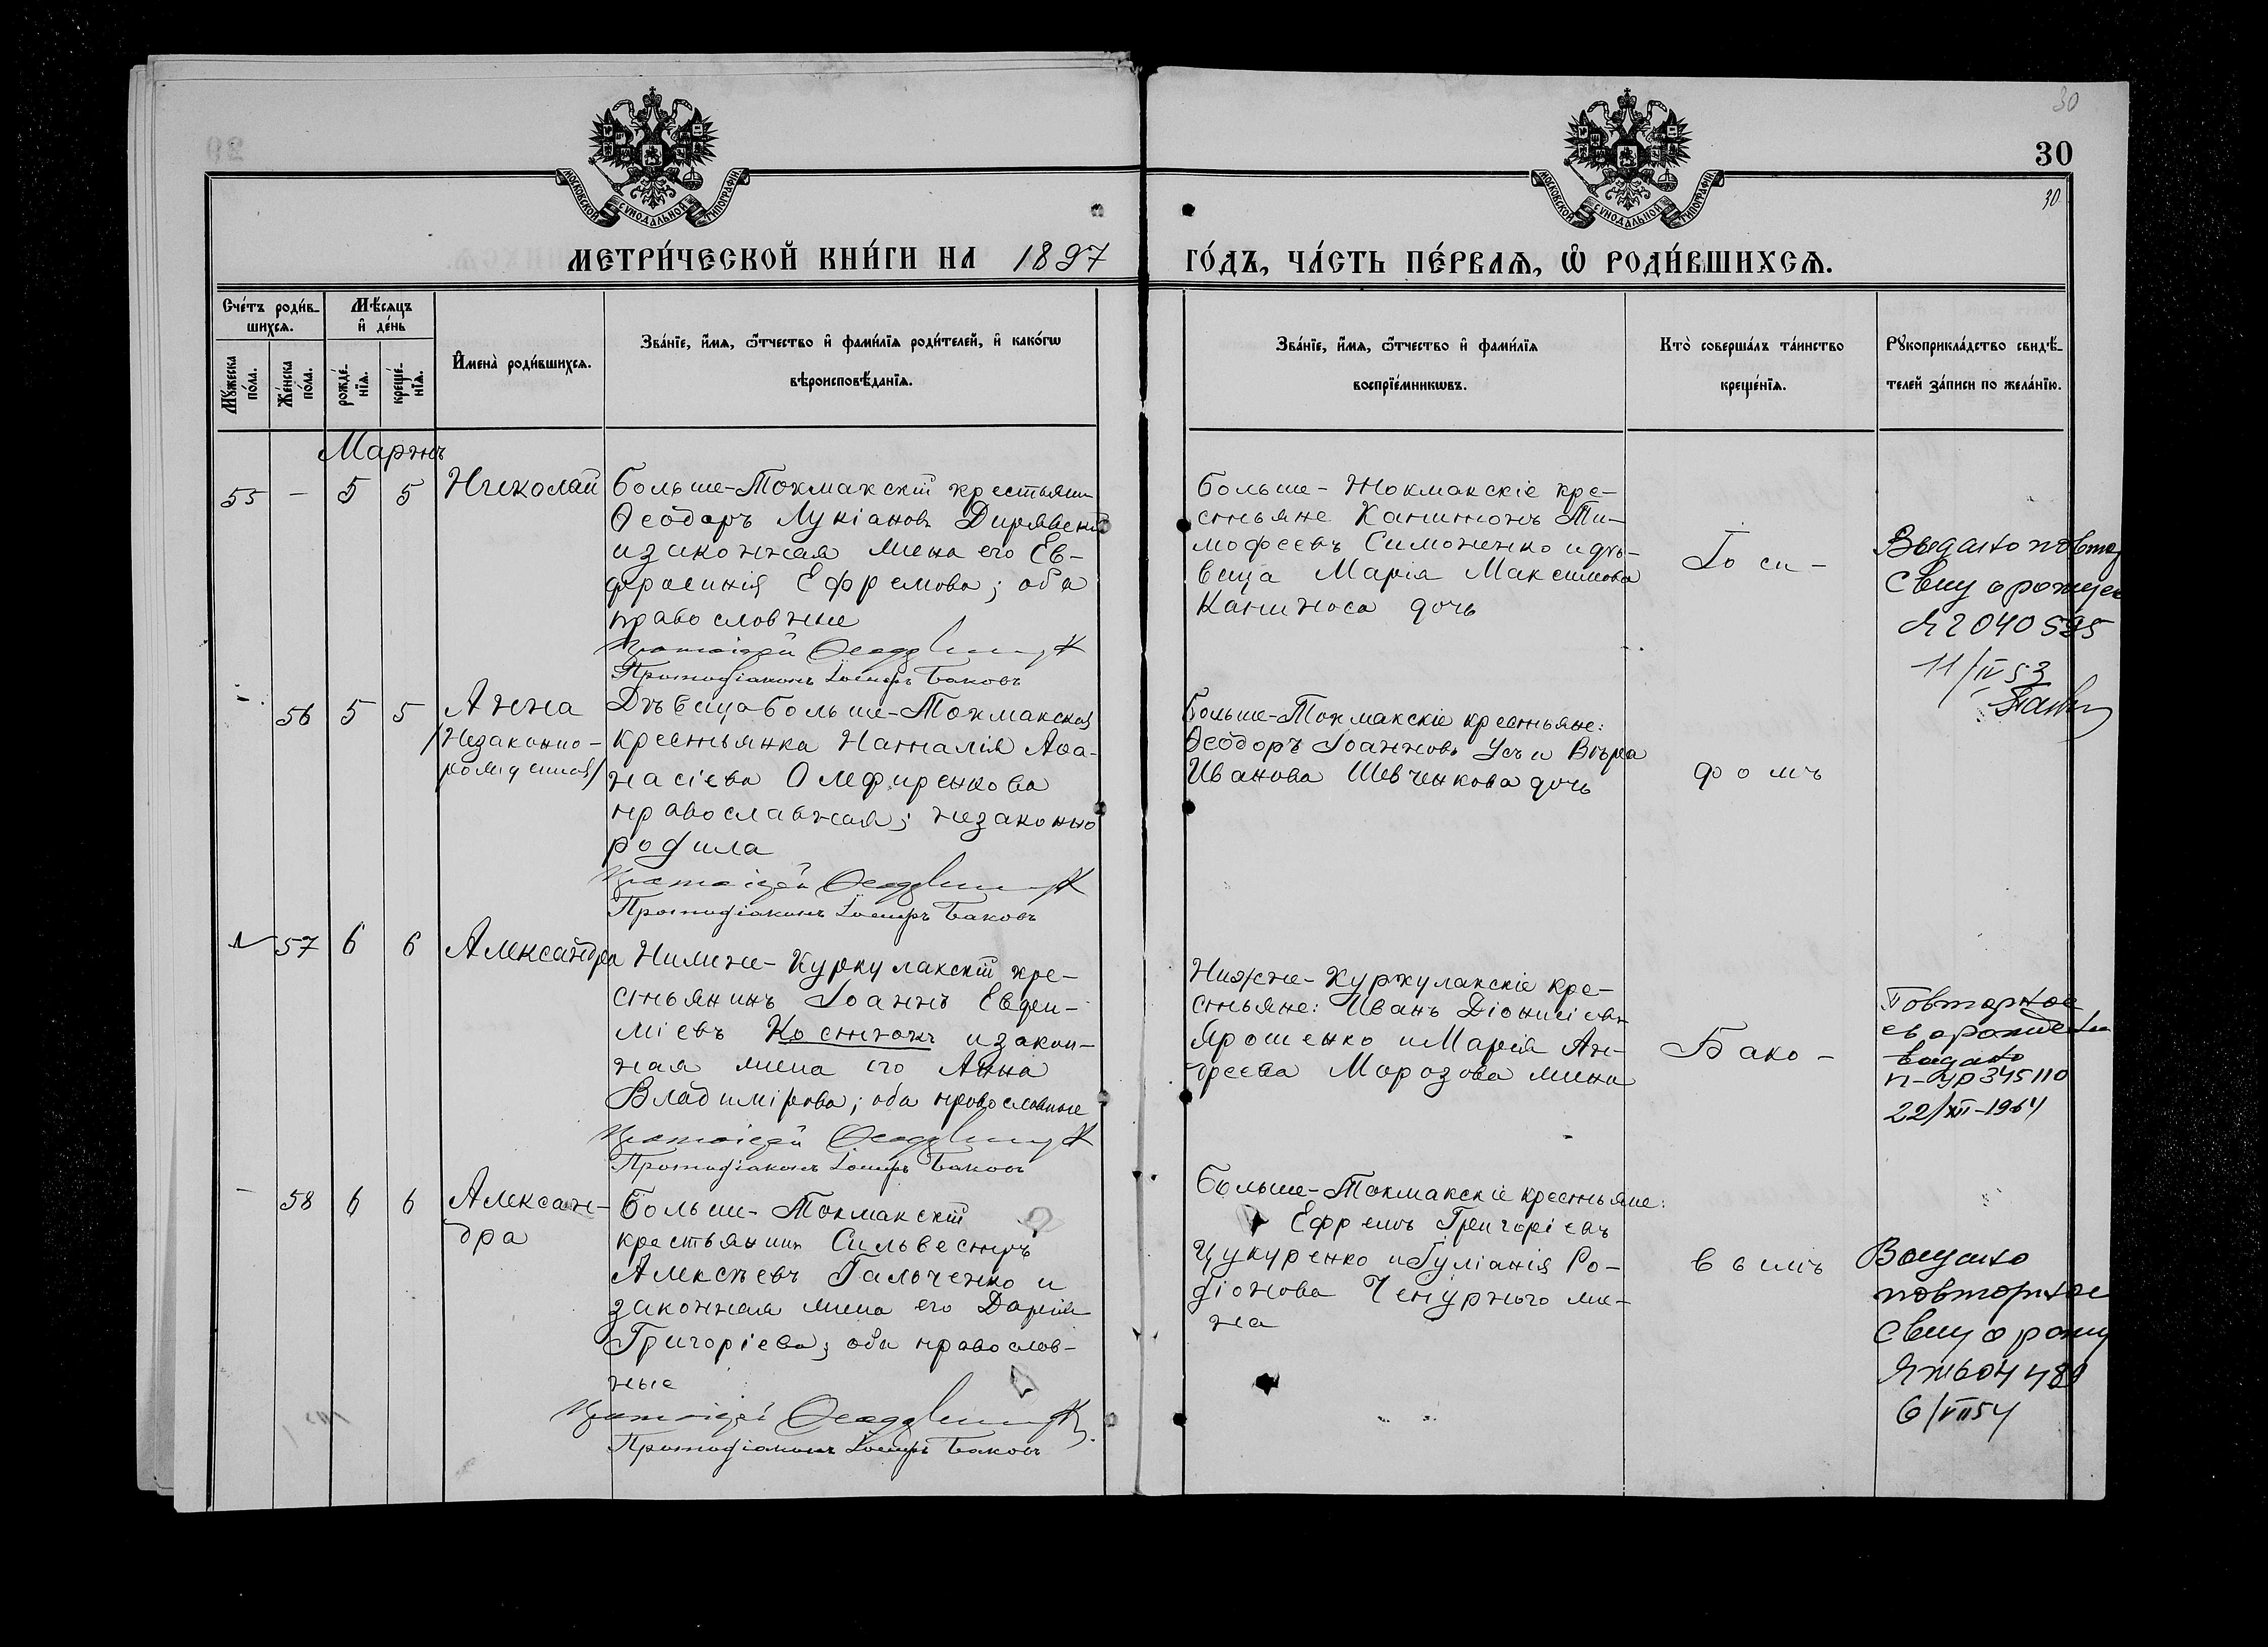 30
30
30
МОСКОВСКОЙ СѴНОДАЛЬНОЙ ТИПОГРАФІИ
МОСКОВСКОЙ СѴНОДАЛЬНОЙ ТИПОГРАФІИ
МЕТРИ́ЧЕСКОЙ КНИ́ГИ НА 1897
ГО́ДЪ, ЧА́СТЬ ПЕ́РВАѦ, Ѡ҆ РОДИ́ВШИХСѦ.
Сче́тъ роди́в-
шихсѧ.
Мѣ́сѧцъ
и҆ де́нь
Мꙋ́жеска
по́ла.
Же́нска
по́ла.
рожде́-
нїѧ.
креще́-
нїѧ.
И҆мена̀ роди́вшихсѧ.
Зва́нїе, и҆́мѧ, ѻ҆́тчество и҆ фами́лїѧ роди́телей, и҆ како́гѡ
вѣроисповѣ́данїѧ.
Зва́нїе, и҆́мѧ, ѻ҆́тчество и҆ фами́лїѧ
воспрїе́мникѡвъ.
Кто̀ соверша́лъ та́инство
креще́нїѧ.
Рꙋкоприкла́дство свидѣ́-
телей за́писи по жела́нїю.
Мартъ
55 - 5 5 Николай
Больше-Токмакскій крестьянин
Ѳеодоръ Лукіановъ
и законная жена его Ев-
фросинія Ефремова; оба
православные
Протоіерей
Протодіаконъ Іосифъ Баковъ
Больше-Токмакскіе кре-
стьяне Капитонъ Ти-
мофеевъ Симоненко и дѣ-
вица Марія Максимова
дочь
Іоси-
Выдано повтор
Свид о рожден
11/IV 53
- 56 5 5 Анна
/Незаконно-
рожденная/
Дѣвица Больше-Токмакская
крестьянка Наталія Аѳа-
насіева Олефиренкова
православная; незаконно
родила
Протоіерей
Протодіаконъ Іосифъ Баковъ
Больше-Токмакскіе крестьяне:
Ѳеодоръ Іоанновъ Усъ и Вѣра
Иванова Шевченкова дочь
фомъ
57 6 6 Александра
Нижне-Куркулакскій кре-
стьянинъ Іоаннъ Евфи-
міевъ Костюкъ и закон-
ная жена его Анна
Владимірова; оба православные
Протоіерей
Протодіаконъ Іосифъ Баковъ
Нижне-Куркулакскіе кре-
стьяне: Иванъ Діонисіевъ
Ярошенко и Марія Ан-
дреева Морозова жена
Бако-
Повторное
св о рождении
выдано
22/XII-1964
- 58 6 6 Алексан-
дра
Больше-Токмакскій
крестьянинъ Сильвестръ
Алексѣевъ Гальченко и
законная жена его Дарія
Григоріева; оба православ-
ные
Протоіерей
Протодіаконъ Іосифъ Баковъ
Больше-Токмакскіе крестьяне:
Ефремъ Григоріевъ
Цукуренко и Іуліанія Ро-
діонова Чепурного же-
на
вымъ
Выдано
повторное
Свид о рожд
6/VII 54